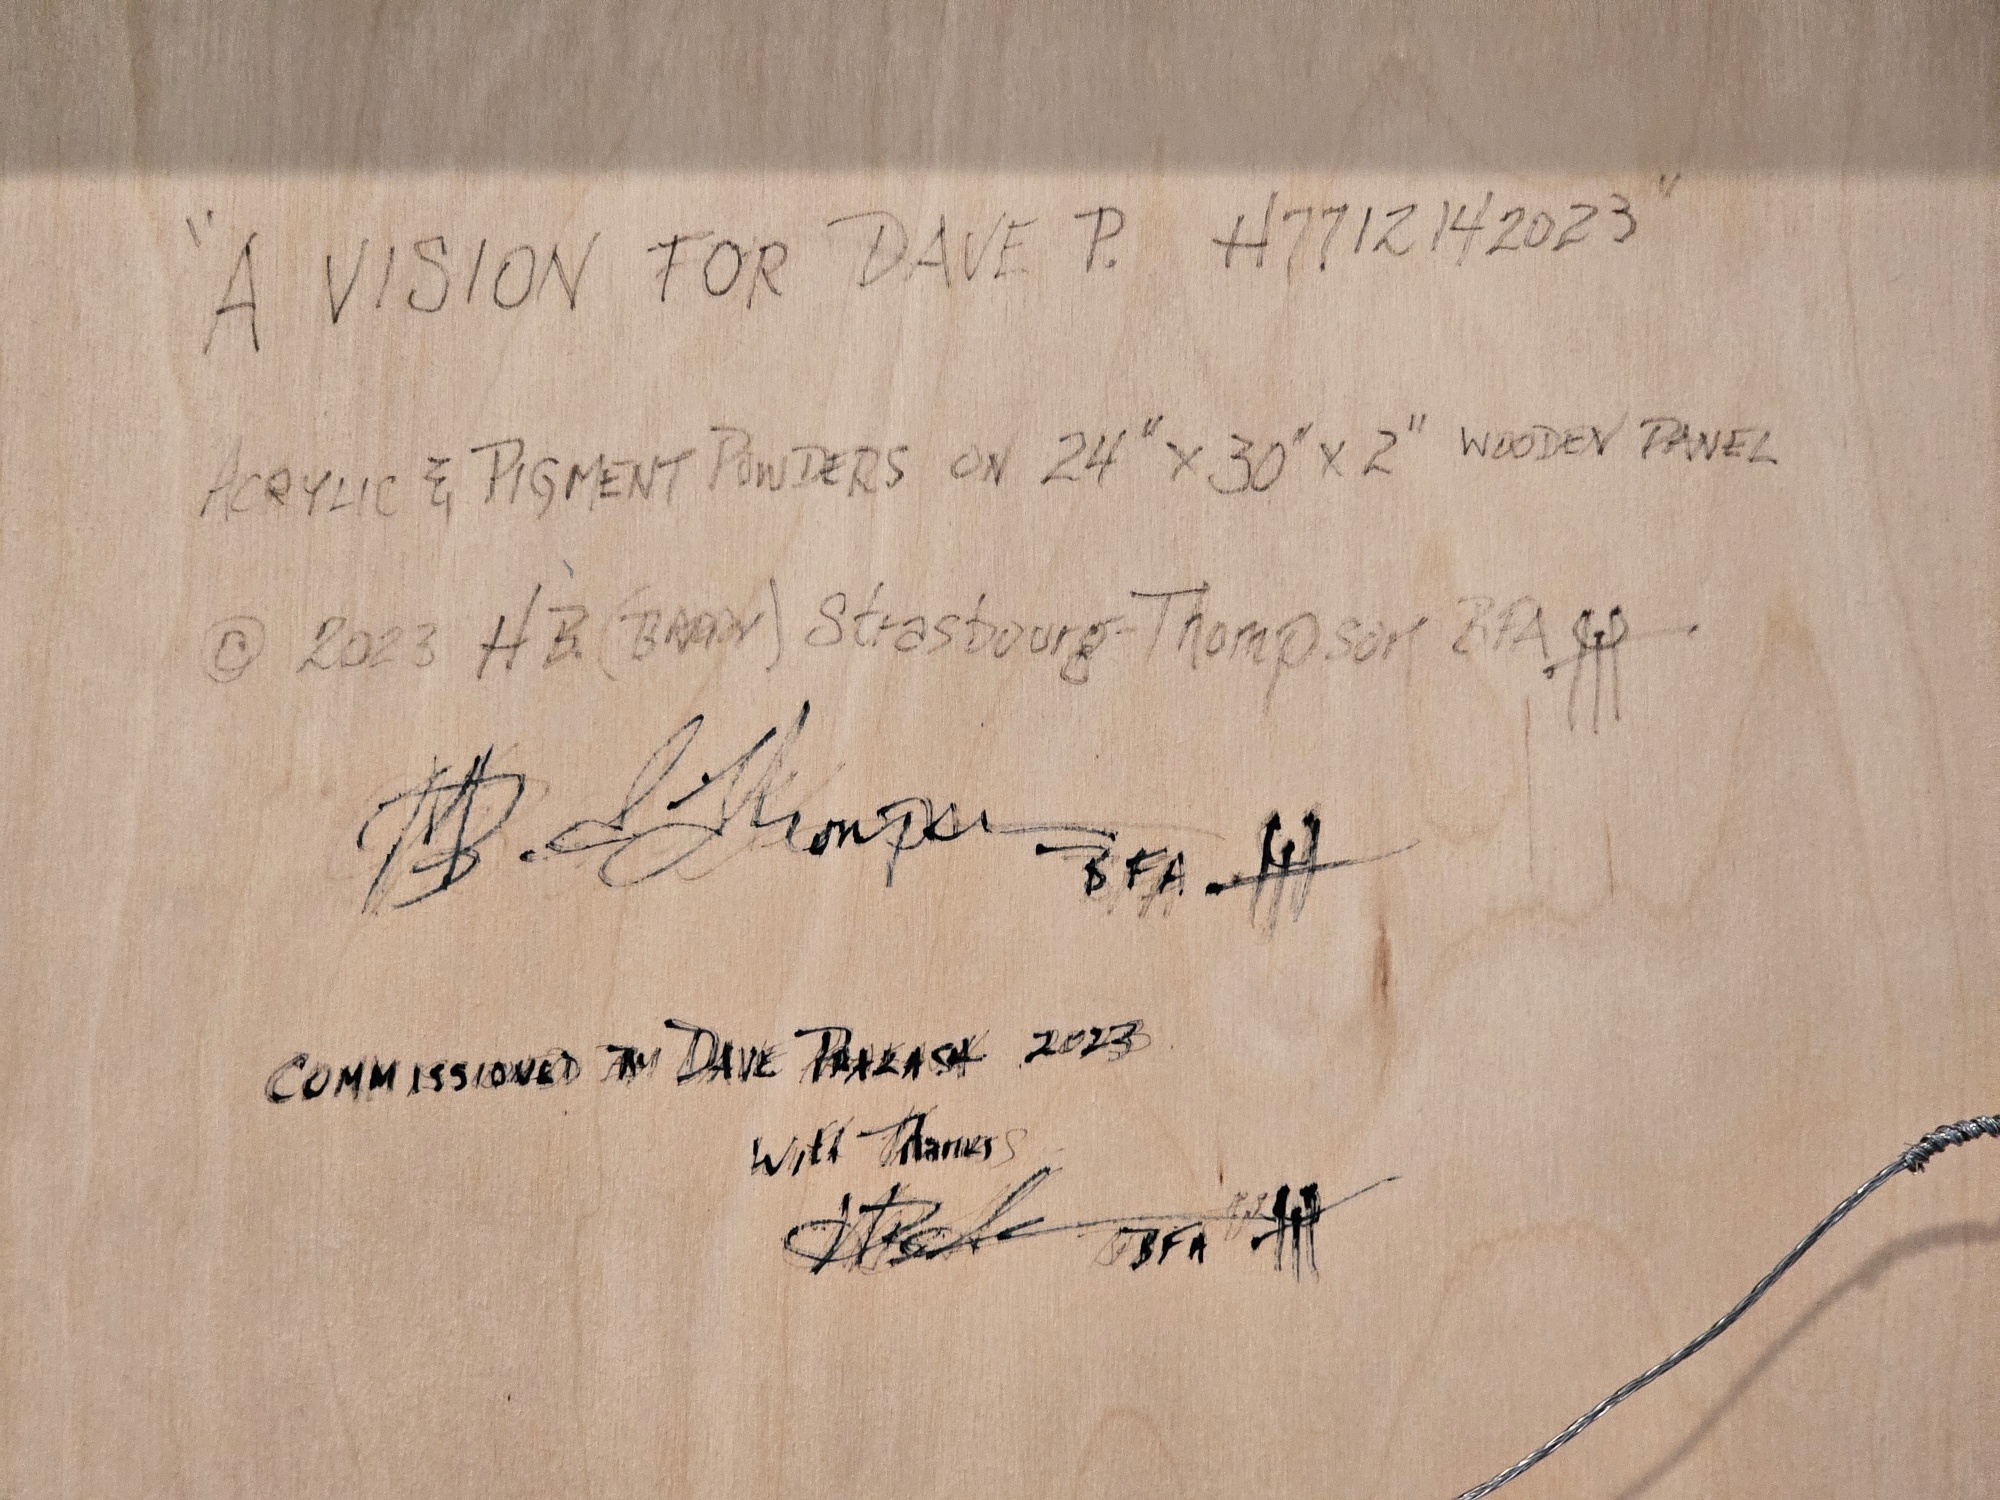 "A VISION FOR DAVE P. H7712142023"
ACRYLIC & PIGMENT POWDERS ON 24" x 30" x 2" WOODEN PANEL
© 2023 H B. Strasbourg-Thompson BFA
B. S Thompson BFA
COMMISSIONED DAVE PRAKASH 2023
With Thanks
BFA